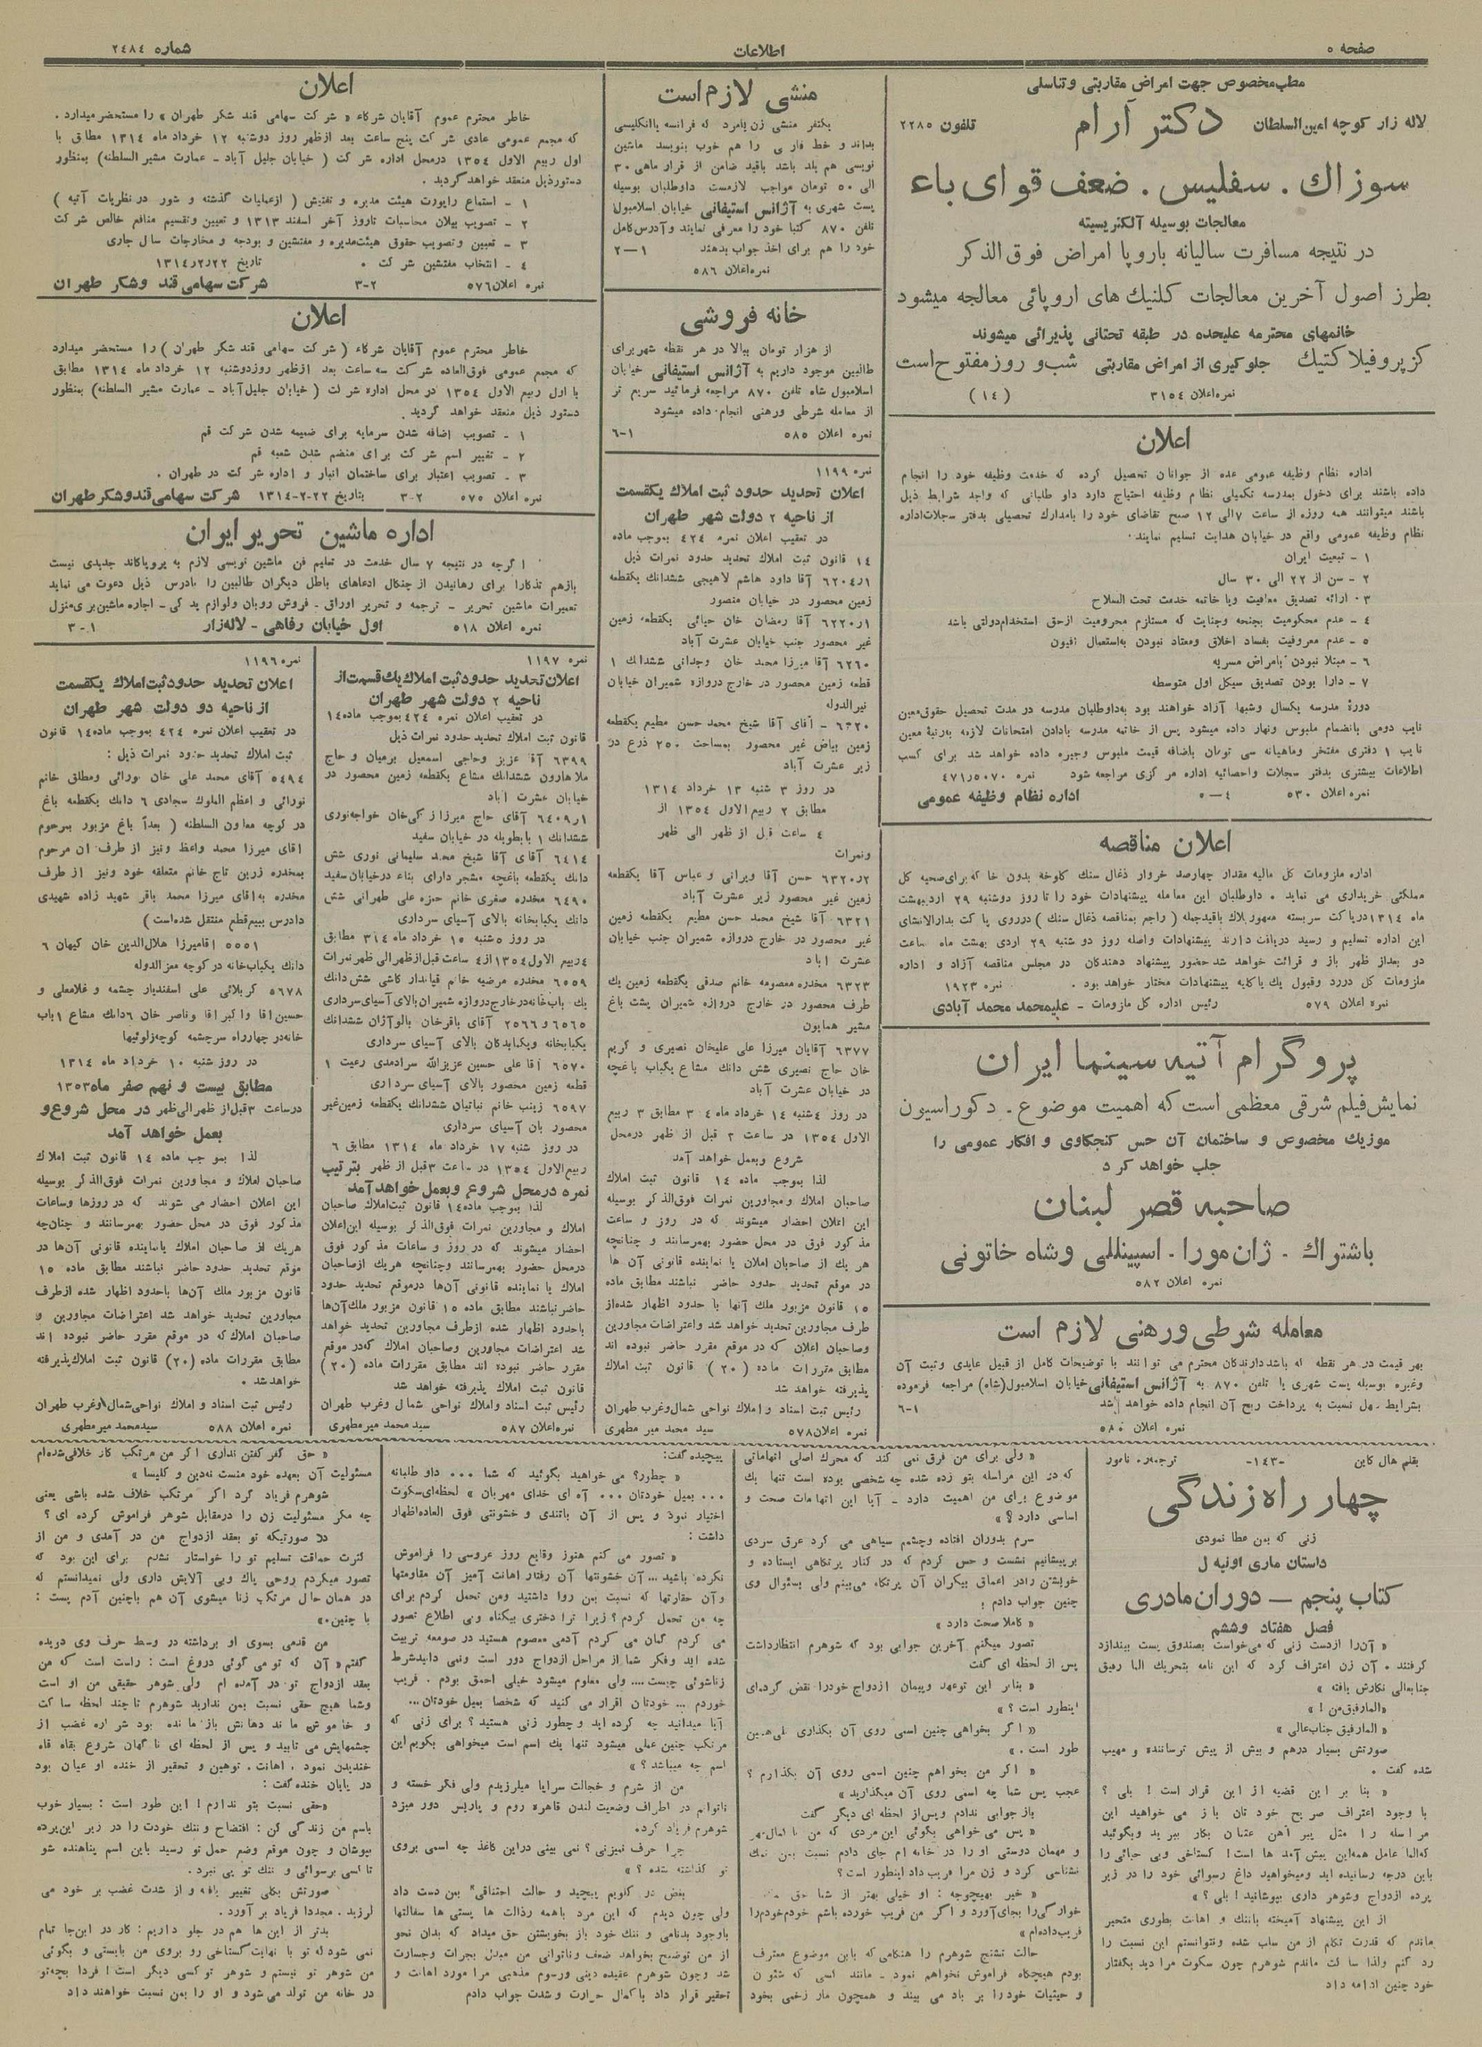 صفحه ٥
اطلاعات
شماره ٢٤٨٤
مطب مخصوص جهت امراض مقاربتی وتناسلی
لاله زار کوچه امین‌السلطان دکتر آرام تلفون ٢٢٨٥
سوزاك . سفلیس . ضعف قوای باء
معالجات بوسیله آلکتریسیته
در نتیجه مسافرت سالیانه باروپا امراض فوق‌الذکر
بطرز اصول آخرین معالجات کلنیك های اروپائی معالجه میشود
خانمهای محترمه علیحده در طبقه تحتانی پذیرائی میشوند
کزپروفیلاکتیك جلوگیری از امراض مقاربتی شب و روز مفتوح است
نمره اعلان ٣١٥٤ (١٤)
اعلان
اداره نظام وظیفه عمومی عده از جوانان تحصیل کرده که خدمت وظیفه خود را انجام
داده باشند برای دخول بمدرسه تکمیلی نظام وظیفه احتیاج دارد داو طلبانی که واجد شرایط ذیل
باشند میتوانند همه روزه از ساعت ٧ الی ١٢ صبح تقاضای خود را بامدارك تحصیلی بدفتر سجلات اداره
نظام وظیفه عمومی واقع در خیابان هدایت تسلیم نمایند.
١ - تبعیت ایران
٢ - سن از ٢٢ الی ٣٠ سال
٣ - ارائه تصدیق معافیت ویا خاتمه خدمت تحت السلاح
٤ - عدم محکومیت بجنحه وجنایت که مستلزم محرومیت ازحق استخدام دولتی باشد
٥ - عدم معروفیت بفساد اخلاق ومعتاد نبودن به‌استعمال افیون
٦ - مبتلا نبودن بامراض مسریه
٧ - دارا بودن تصدیق سیکل اول متوسطه
دورهٔ مدرسه یکسال وشبها آزاد خواهند بود به‌داوطلبان مدرسه در مدت تحصیل حقوق معین
نایب دومی بانضمام ملبوس ونهار داده میشود پس از خاتمه مدرسه بادادن امتحانات لازمه به‌رتبهٔ معین
نایب ١ دفتری مفتخر وماهیانه سی تومان باضافه قیمت ملبوس وجیره داده خواهد شد برای کسب
اطلاعات بیشتری بدفتر سجلات واحصائیه اداره مرکزی مراجعه شود نمره ٤٧١ر٥٠٧٠
نمره اعلان ٥٣٠ ٤-٥ اداره نظام وظیفه عمومی
اعلان مناقصه
اداره ملزومات کل مالیه مقدار چهارصد خروار ذغال سنك کلوخه بدون خاکه برای صحیه کل
مملکتی خریداری می نماید . داوطلبان این معامله پیشنهادات خود را تا روز دوشنبه ٢٩ اردیبهشت
ماه ١٣١٤ درپاکت سربسته ممهور بلاك باقیدجمله (راجع بمناقصه ذغال سنك) درروی پاکت بدارالانشای
این اداره تسلیم و رسید دریافت دارند پیشنهادات واصله روز دو شنبه ٢٩ اردی بهشت ماه ساعت
دو بعداز ظهر باز و قرائت خواهد شد حضور پیشنهاد دهندگان در مجلس مناقصه آزاد و اداره
ملزومات کل دررد وقبول یك یاکلیه پیشنهادات مختار خواهد بود . نمره ١٩٢٣
نمره اعلان ٥٧٩ رئیس اداره کل ملزومات - علیمحمد محمد آبادی
پروگرام آتیه سینما ایران
نمایش فیلم شرقی معظمی است که اهمیت موضوع . دکوراسیون
موزیك مخصوص و ساختمان آن حس کنجکاوی و افکار عمومی را
جلب خواهد کرد
صاحبه قصر لبنان
باشتراك . ژان مورا . اسپینللی وشاه خاتونی
نمره اعلان ٥٨٢
معامله شرطی ورهنی لازم است
بهر قیمت در هر نقطه که باشد دارندکان محترم می توانند با توضیحات کامل از قبیل عایدی وثبت آن
وغیره بوسیله پست شهری یا تلفن ٨٧٠ به آژانس استیفانی خیابان اسلامبول(شاه) مراجعه فرموده
بشرایط سهل نسبت به پرداخت ربح آن انجام داده خواهد شد ١-٦
نمره اعلان ٥٨٤
منشی لازم است
یکنفر منشی زن یامرد که فرانسه یاانگلیسی
بداند و خط فارسی را هم خوب بنویسد ماشین
نویسی هم بلد باشد باقید ضامن از قرار ماهی ٣٠
الی ٥٠ تومان مواجب لازمست داوطلبان بوسیله
پست شهری به آژانس استیفانی خیابان اسلامبول
تلفن ٨٧٠ کتبا خود را معرفی نمایند وآدرس کامل
خود را هم برای اخذ جواب بدهند ١-٢
نمره اعلان ٥٨٦
خانه فروشی
از هزار تومان ببالا در هر نقطه شهر برای
طالبین موجود داریم به آژانس استیفانی خیابان
اسلامبول شاه تلفن ٨٧٠ مراجعه فرمائید سریع تر
از معامله شرطی ورهنی انجام داده میشود
نمره اعلان ٥٨٥ ١-٦
نمره ١١٩٩
اعلان تحدید حدود ثبت املاك یکقسمت
از ناحیه ٢ دولت شهر طهران
در تعقیب اعلان نمره ٤٢٤ بموجب ماده
١٤ قانون ثبت املاك تحدید حدود نمرات ذیل
٦٢٠٤ر١ آقا داود هاشم لاهیجی ششدانك یکقطعه
زمین محصور در خیابان منصور
٦٢٢٠ر١ آقا رمضان خان حیائی یکقطعه زمین
غیر محصور جنب خیابان عشرت آباد
٦٢٦٠ آقا میرزا محمد خان وجدانی ششدانك ١
قطعه زمین محصور در خارج دروازه شمیران خیابان
نیرالدوله
٦٣٢٠ - آقای آقا شیخ محمد حسن مطیع یکقطعه
زمین بیاض غیر محصور بمساحت ٢٥٠ ذرع در
زیر عشرت آباد
در روز ٣ شنبه ١٣ خرداد ١٣١٤
مطابق ٢ ربیع الاول ١٣٥٤ از
٤ ساعت قبل از ظهر الی ظهر
ونمرات
٦٣٢٠ر٢ حسن آقا ویرانی و عباس آقا یکقطعه
زمین غیر محصور زیر عشرت آباد
٦٣٢١ آقا شیخ محمد حسن مطیع یکقطعه زمین
غیر محصور در خارج دروازه شمیران جنب خیابان
عشرت آباد
٦٣٢٣ مخدره معصومه خانم صدقی یکقطعه زمین یك
طرف محصور در خارج دروازه شمیران پشت باغ
مشیر همایون
٦٣٧٧ آقایان میرزا علی علیخان نصیری و کریم
خان حاج نصیری شش دانك مشاع یکباب باغچه
در خیابان عشرت آباد
در روز ٤ شنبه ١٤ خرداد ماه ٣٠٤ مطابق ٣ ربیع
الاول ١٣٥٤ در ساعت ٢ قبل از ظهر درمحل
شروع وبعمل خواهد آمد
لذا بموجب ماده ١٤ قانون ثبت املاك
صاحبان املاك ومجاورین نمرات فوق‌الذکر بوسیله
این اعلان احضار میشوند که در روز و ساعت
مذکور فوق در محل حضور بهمرسانند و چنانچه
هر یك از صاحبان املاك یا نماینده قانونی آن ها
در موقع تحدید حدود حاضر نباشند مطابق ماده
١٥ قانون مزبور ملك آنها با حدود اظهار شده از
طرف مجاورین تحدید خواهد شد واعتراضات مجاورین
وصاحبان املاك که در موقع مقرر حاضر نبوده اند
مطابق مقررات ماده (٢٠) قانون ثبت املاك
پذیرفته خواهد شد
رئیس ثبت اسناد و املاك نواحی شمال‌وغرب طهران
نمره اعلان ٥٧٨ سید محمد میر مطهری
اعلان
خاطر محترم عموم آقایان شرکاء « شرکت سهامی قند شکر طهران » را مستحضر میدارد.
که مجمع عمومی عادی شرکت پنج ساعت بعد ازظهر روز دوشنبه ١٢ خرداد ماه ١٣١٤ مطابق با
اول ربیع الاول ١٣٥٤ درمحل اداره شرکت (خیابان جلیل آباد - عمارت مشیر السلطنه) بمنظور
دستورذیل منعقد خواهد گردید .
١ - استماع راپورت هیئت مدیره و تفتیش ( ازعملیات گذشته و شور در نظریات آتیه )
٢ - تصویب بیلان محاسبات تاروز آخر اسفند ١٣١٣ و تعیین وتقسیم منافع خالص شرکت
٣ - تعیین وتصویب حقوق هیئت‌مدیره و مفتشین و بودجه و مخارجات سال جاری
٤ - انتخاب مفتشین شرکت . تاریخ ٢٢ر٢ر١٣١٤
نمره اعلان ٥٧٦ ٢-٣ شرکت سهامی قند وشکر طهران
اعلان
خاطر محترم عموم آقایان شرکاء (شرکت سهامی قند شکر طهران) را مستحضر میدارد
که مجمع عمومی فوق‌العاده شرکت سه ساعت بعد ازظهر روزدوشنبه ١٢ خرداد ماه ١٣١٤ مطابق
با اول ربیع الاول ١٣٥٤ در محل اداره شرکت (خیابان جلیل‌آباد - عمارت مشیر السلطنه) بمنظور
دستور ذیل منعقد خواهد گردید.
١ - تصویب اضافه شدن سرمایه برای ضمیمه شدن شرکت قم
٢ - تغییر اسم شرکت برای منضم شدن شعبه قم
٣ - تصویب اعتبار برای ساختمان انبار و اداره شرکت در طهران .
نمره اعلان ٥٧٥ ٢-٣ بتاریخ ٢٢-٢-١٣١٤ شرکت سهامی قندوشکر طهران
اداره ماشین تحریر ایران
اگرچه در نتیجه ٧ سال خدمت در تعلیم فن ماشین نویسی لازم به پروپاکاند جدیدی نیست
بازهم تذکارا برای رهانیدن از چنکال ادعاهای باطل دیگران طالبین را بادرس ذیل دعوت می نماید
تعمیرات ماشین تحریر - ترجمه و تحریر اوراق - فروش روبان ولوازم یدکی - اجاره ماشین برای منزل
نمره اعلان ٥١٨ اول خیابان رفاهی - لاله‌زار ١-٣
نمره ١١٩٧
اعلان تحدید حدود ثبت املاك یك قسمت از
ناحیه ٢ دولت شهر طهران
در تعقیب اعلان نمره ٤٢٤ بموجب ماده ١٤
قانون ثبت املاك تحدید حدود نمرات ذیل
٦٣٩٩ آقا عزیز وحاجی اسمعیل برمیان و حاج
ملاهارون ششدانك مشاع یکقطعه زمین محصور در
خیابان عشرت آباد
٦٤٠٩ر١ آقای حاج میرزا زکی‌خان خواجه‌نوری
ششدانك ١ باب‌طویله در خیابان سفید
٦٤١٤ آقای آقا شیخ محمد سلیمانی نوری شش
دانك یکقطعه باغچه مشجر دارای بناء درخیابان سفید
٦٤٩٠ مخدره صغری خانم حمزه علی طهرانی شش
دانك یکبابخانه بالای آسیای سرداری
در روز ٥ شنبه ١٥ خرداد ماه ٣١٤ مطابق
٤ ربیع الاول ١٣٥٤ از ٤ ساعت قبل ازظهر الی ظهر نمرات
٦٥٥٩ مخدره مرضیه خانم قیاندار کاشی شش دانك
یك باب‌خانه در خارج دروازه شمیران بالای آسیای سرداری
٦٥٦٥ و ٢٥٦٦ آقای باقرخان بالوآژان ششدانك
یکبابخانه ویکبابدکان بالای آسیای سرداری
٦٥٧٠ آقا علی حسین عزیزالله سرآمدی رعیت ١
قطعه زمین محصور بالای آسیای سرداری
٦٥٩٧ زینب خانم نباتیان ششدانك یکقطعه زمین غیر
محصور بان آسیای سرداری
در روز شنبه ١٧ خرداد ماه ١٣١٤ مطابق ٦
ربیع‌الاول ١٣٥٤ در ساعت ٣ قبل از ظهر بترتیب
نمره درمحل شروع وبعمل خواهدآمد
لذا بموجب ماده ١٤ قانون ثبت‌املاك صاحبان
املاك و مجاورین نمرات فوق‌الذکر بوسیله این‌اعلان
احضار میشوند که در روز و ساعات مذکور فوق
درمحل حضور بهمرسانند وچنانچه هریك ازصاحبان
املاك یا نماینده قانونی آن‌ها درموقع تحدید حدود
حاضرنباشند مطابق ماده ١٥ قانون مزبور ملك‌آن‌ها
باحدود اظهار شده ازطرف مجاورین تحدید خواهد
شد اعتراضات مجاورین وصاحبان املاك که‌در موقع
مقرر حاضر نبوده اند مطابق مقررات ماده (٢٠)
قانون ثبت املاك پذیرفته خواهد شد
رئیس ثبت اسناد واملاك نواحی شمال وغرب طهران
نمره اعلان ٥٨٧ سید محمد میر مطهری
نمره ١١٩٦
اعلان تحدید حدود ثبت املاك یکقسمت
از ناحیه دو دولت شهر طهران
در تعقیب اعلان نمره ٤٢٤ بموجب ماده ١٤ قانون
ثبت املاك تحدید حدود نمرات ذیل :
٥٤٩٤ آقای محمد علی خان نورائی ومطلق خانم
نورائی و اعظم الملوك سجادی ٦ دانك یکقطعه باغ
در کوچه معاون السلطنه ( بعداً باغ مزبور بمرحوم
آقای میرزا محمد واعظ ونیز از طرف آن مرحوم
بمخدره زرین تاج خانم متعلقه خود ونیز از طرف
مخدره به‌آقای میرزا محمد باقر شهید زاده شهیدی
دادرس ببیع‌قطع منتقل شده‌است)
٥٥٥١ آقامیرزا هلال‌الدین خان کیهان ٦
دانك یکباب‌خانه در کوچه معزالدوله
٥٦٧٨ کربلائی علی اسفندیار چشمه و غلامعلی و
حسین‌آقا واکبرآقا وناصر خان ٦دانك مشاع ١باب
خانه‌در چهارراه سرچشمه کوچه‌زلوئیها
در روز شنبه ١٠ خرداد ماه ١٣١٤
مطابق بیست و نهم صفر ماه ١٣٥٣
درساعت ٣ قبل‌از ظهر الی‌ظهر در محل شروع و
بعمل خواهد آمد
لذا بموجب ماده ١٤ قانون ثبت املاك
صاحبان املاك و مجاورین نمرات فوق‌الذکر بوسیله
این اعلان احضار می شوند که در روزها وساعات
مذکور فوق در محل حضور بهمرسانند و چنان‌چه
هریك از صاحبان املاك یانماینده قانونی آن‌ها در
موقع تحدید حدود حاضر نباشند مطابق ماده ١٥
قانون مزبور ملك آن‌ها باحدود اظهار شده ازطرف
مجاورین تحدید خواهد شد اعتراضات مجاورین و
صاحبان املاك‌که در موقع مقرر حاضر نبوده اند
مطابق مقررات ماده (٢٠) قانون ثبت املاك‌پذیرفته
خواهدشد .
رئیس ثبت اسناد و املاك نواحی شمال‌وغرب طهران
نمره اعلان ٥٨٨ سیدمحمد میرمطهری
بقلم هال کاین -١٤٣- ترجمهٔ
چهار راه زندگی
زنی که بمن عطا نمودی
داستان ماری اونیه ل
کتاب پنجم - دوران مادری
فصل هفتاد وششم
« آن‌را ازدست زنی که می‌خواست بصندوق پست بیندازد
گرفتند . آن زن اعتراف کرد که این نامه بتحریك الما رفیق
جنابعالی نگارش یافته »
«المارفیق من ! »
« المارفیق جناب‌عالی »
صورتش بسیار درهم و بیش از پیش ترساننده و مهیب
شده گفت .
« بنا بر این قضیه از این قرار است ! بلی ؟
با وجود اعتراف صریح خودتان باز می خواهید این
مراسله را مثل پیراهن عثمان بکار ببرید وبگوئید
که‌الما عامل همه‌این پیش آمد ها است! گستاخی وبی حیائی را
باین درجه رسانیده اید ومیخواهید داغ رسوائی خود را در زیر
پرده ازدواج وشوهر داری بپوشانید ! بلی ؟ »
از این پیشنهاد آمیخته باننك و اهانت بطوری متحیر
ماندم که قدرت تکلم از من سلب شده ونتوانستم این نسبت را
رد کنم ولذا ساکت ماندم شوهرم چون سکوت مرا دید بگفتار
خود چنین ادامه داد
« ولی برای من فرق نمی کند که محرك اصلی اتهاماتی
که در این مراسله بتو زده شده چه شخصی بوده است تنها یك
موضوع برای من اهمیت دارد - آیا این اتهامات صحت و
اساسی دارد ؟ »
سرم بدوران افتاده وچشم سیاهی می کرد عرق سردی
برپیشانیم نشست و حس کردم که در کنار پرتگاهی ایستاده و
خویشتن رادر اعماق بیکران آن پرتگاه می‌بینم ولی بسئوال وی
چنین جواب دادم !
« کاملا صحت دارد »
تصور میکنم آخرین جوابی بود که شوهرم انتظارداشت
پس از لحظه ای گفت
« بنابر این توعهد وپیمان ازدواج خودرا نقض کرده‌ای
اینطور است ؟ »
« اگر بخواهی چنین اسمی روی آن بگذاری بلی‌همین
طور است . »
« اگر من بخواهم چنین اسمی روی آن بگذارم ؟
عجب پس شما چه اسمی روی آن میگذارید »
باز جوابی ندادم وپس‌از لحظه ای دیگر گفت
« پس می خواهی بگوئی این مردی که من با کمال مهر
و مهمان دوستی او را در خانه ام جای دادم نسبت بمن نمك
نشناسی کرد و زن مرا فریب داد اینطور است ؟
« خیر بهیچوجه : او خیلی بهتر از شما حق
خوارگی را بجای‌آورد و اگر من فریب خورده باشم خودم‌خودم‌را
فریب‌داده‌ام »
حالت تشنج شوهرم را هنگامی که باین موضوع معترف
بودم هیچگاه فراموش نخواهم نمود - مانند اسی که شئون
و حیثیات خود را بر باد می بیند و همچون مار زخمی بخود
پیچیده گفت:
« چطور؟ می خواهید بگوئید که شما ... داو طلبانه
... بمیل خودتان ... آه ای خدای مهربان » لحظه‌ای‌سکوت
اختیار نمود و پس از آن باتندی و خشونتی فوق العاده‌اظهار
داشت :
« تصور می کنم هنوز وقایع روز عروسی را فراموش
نکرده باشید ... آن خشونتها آن رفتار اهانت آمیز آن مقاومتها
وآن حقارتها که نسبت بمن روا داشتید ومن تحمل کردم برای
چه من تحمل کردم ؟ زیرا ترا دختری بیگناه وبی اطلاع تصور
می کردم گمان می کردم آدمی معصوم هستید در صومعه تربیت
شده اید وفکر شما از مراحل ازدواج دور است ونمی دانید شرط
زناشوئی چیست ... ولی معلوم میشود خیلی احمق بودم . فریب
خوردم ... خودتان اقرار می کنید که شخصا بمیل خودتان...
آیا میدانید چه کرده اید و چطور زنی هستید ؟ برای زنی که
مرتکب چنین عملی میشود تنها یك اسم است میخواهی بگویم‌این
اسم چه میباشد ؟ »
من از شرم و خجالت سراپا میلرزیدم ولی فکر خسته و
ناتوانم در اطراف وضعیت لندن قاهره روم و پاریس دور میزد
شوهرم فریاد کرد.
چرا حرف نمیزنی ؟ نمی بینی دراین کاغذ چه اسمی بروی
تو گذاشته شده ؟ »
بغض در گلویم پیچید و حالت اختناقی بمن دست داد
ولی چون دیدم که این مرد باهمه رذالت ها پستی ها سفالتها
باوجود بدنامی و ننك خود باز بخویشتن حق میداد که بدان نحو
از من توضیح بخواهد ضعف وناتوانی من مبدل بجرات وجسارت
شد وچون شوهرم عقیده دینی ورسوم مذهبی مرا مورد اهانت و
تحقیر قرار داد باکمال حرارت و شدت جواب دادم
« حق کفر گفتن نداری اگر من مرتکب کار خلافی‌شده‌ام
مسئولیت آن بعهده خود منست نه‌دین و کلیسا »
شوهرم فریاد کرد اگر مرتکب خلاف شده باشی یعنی
چه مگر مسئولیت زن را درمقابل شوهر فراموش کرده ای ؟
دلا صورتیکه تو بعقد ازدواج من در آمدی و من از
کثرت حماقت تسلیم تو را خواستار نشدم برای این بود که
تصور میکردم روحی پاك وبی آلایش داری ولی نمیدانستم که
در همان حال مرتکب زنا میشوی آن هم باچنین آدم پست :
با چنین.»
من قدمی بسوی او برداشته در وسط حرف وی دریده
گفتم« آن که تو می گوئی دروغ است : راست است که من
بعقد ازدواج تو در آمده ام ولی شوهر حقیقی من او است
وشما هیچ حقی نسبت بمن ندارید شوهرم تا چند لحظه ساکت
و خاموش ماند دهانش باز مانده بود شراره غضب از
چشمهایش می تابید و پس از لحظه ای ناگهان شروع بقاه قاه
خندیدن نمود . اهانت . توهین و تحقیر از خنده او عیان بود
در پایان خنده گفت :
«حقی نسبت بتو ندارم ! این طور است : بسیار خوب
باسم من زندگی کن : افتضاح وننك خودت را در زیر این‌پرده
بپوشان و چون موقع وضع حمل تو رسید باین اسم پناهنده شو
تا اسی برسوائی و ننك تو پی نبرد .
صورتش بکلی تغییر یافته و از شدت غضب بر خود می
لرزید . مجددا فریاد بر آورد .
بدتر از این ها هم در جلو داریم : کار در این‌جا تمام
نمی شود که تو با نهایت گستاخی رو بروی من بایستی و بگوئی
من شوهر تو نیستم و شوهر تو کسی دیگر است ! فردا بچه‌تو
در خانه من تولد می‌شود و او را بمن نسبت خواهند داد